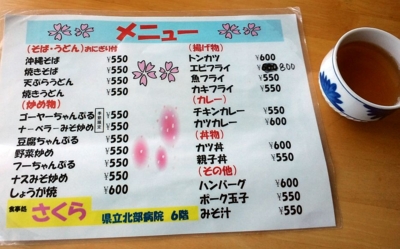 メニュー
(そば・うどん)おにぎり付
沖縄そば ¥550
焼きそば ¥550
天ぷらうどん ¥550
焼きうどん ¥550
(炒め物)
ゴーヤーちゃんぷる ¥550
ナーベラーみそ炒め ¥550
豆腐ちゃんぷる ¥550
野菜炒め ¥550
フーちゃんぷる ¥550
ナスみそ炒め ¥550
しょうが焼 ¥600
(揚げ物)
トンカツ ¥600
エビフライ 800
魚フライ ¥550
カキフライ ¥550
(カレー)
チキンカレー ¥550
カツカレー ¥600
(丼物)
カツ丼 ¥600
親子丼 ¥550
(その他)
ハンバーグ ¥600
ポーク玉子 ¥550
みそ汁 ¥550
食事処 さくら 県立北部病院 6階